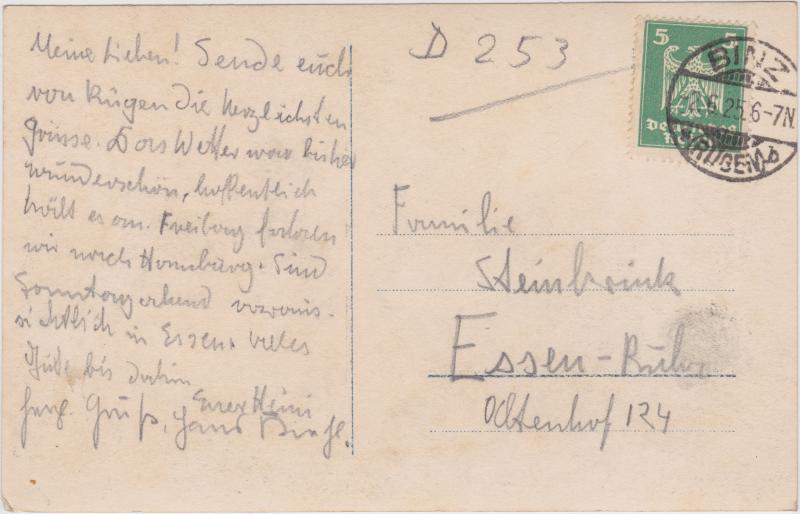 Meine Lieben! Sende euch
von Rügen die herzlichsten
Grüsse. Das Wetter war bisher
wunderschön, hoffentlich
hält es an. Freitag fahren
wir nach Hamburg. Sind
Sonntagabend voraus-
sichtlich in Essen. Vieles
Gute bis dahin
Euer Heini
herzl. Gruß, Hans
D 253
5 5
BINZ
.25.6-7N.
(RÜGEN) b
Familie
Steinbrink
Essen-Ruhr
124